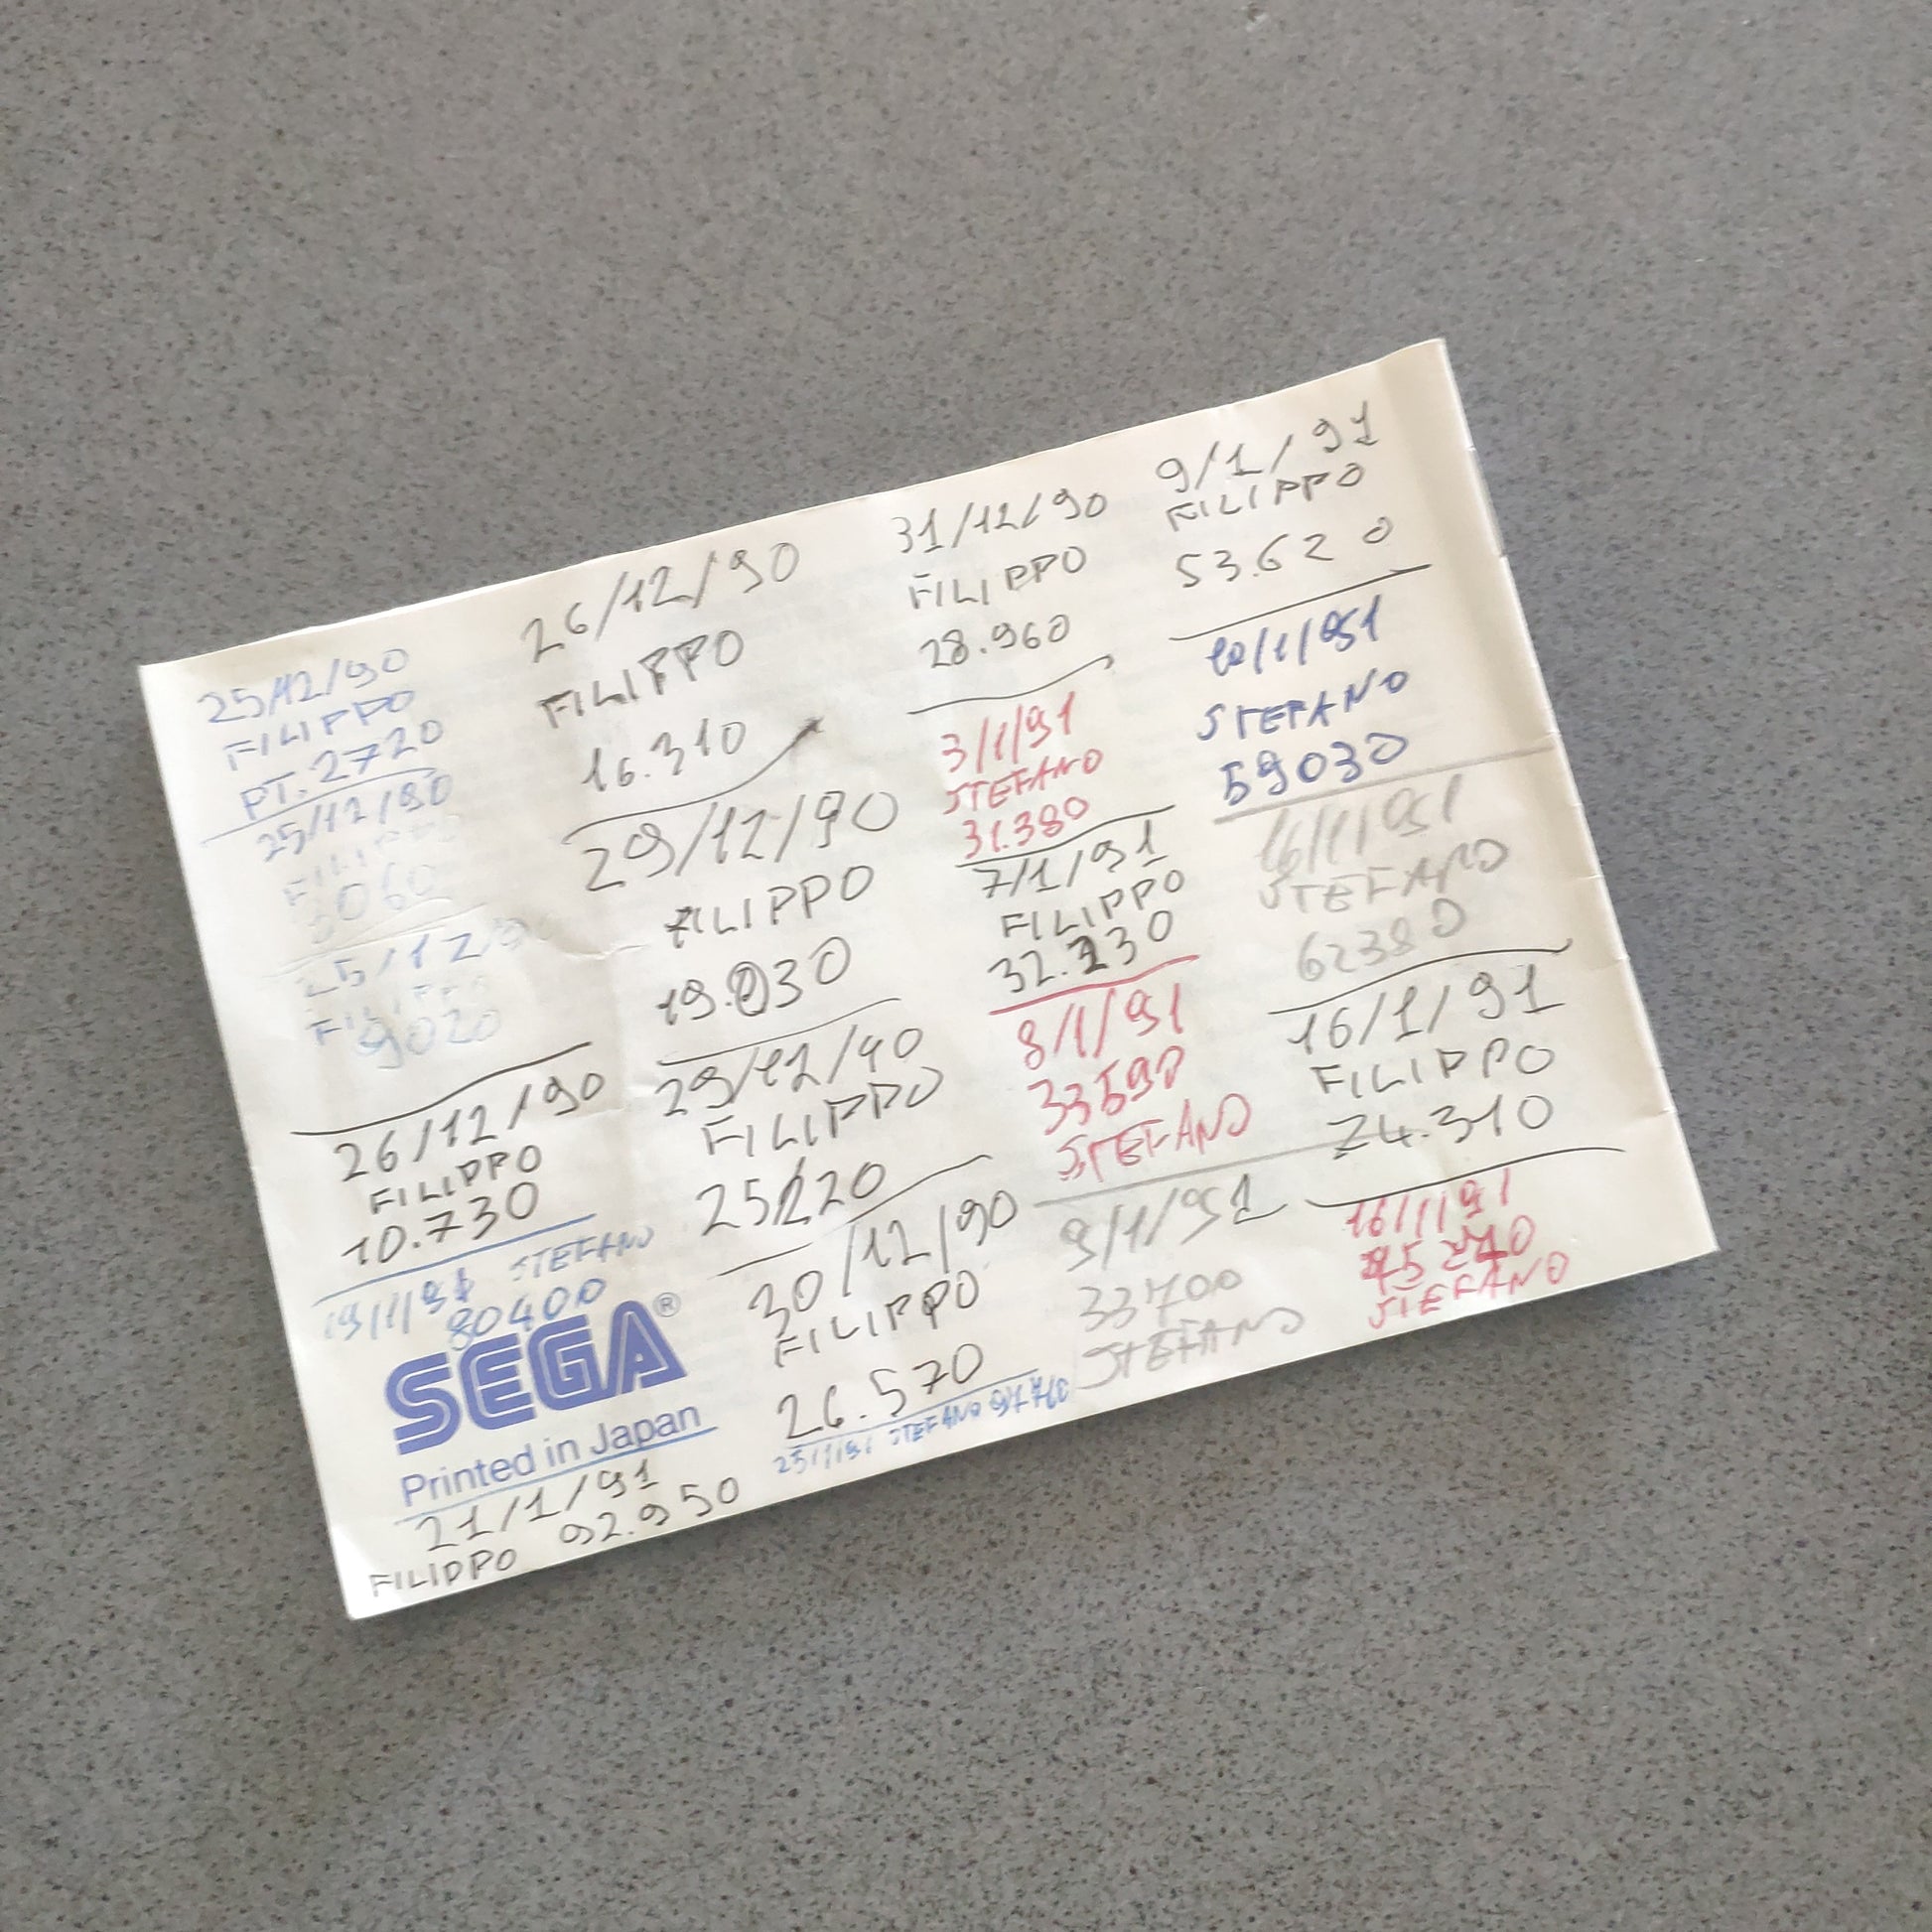 25/12/90
FILIPPO
PT. 2720
25/12/90
FILIPPO
3060
25/12/90
FILIPPO
9020
26/12/90
FILIPPO
10.730
19/1/91 STEFANO
80400
SEGA®
Printed in Japan
21/1/91
FILIPPO 92.950
26/12/90
FILIPPO
16.310
29/12/90
FILIPPO
19.030
29/12/90
FILIPPO
25220
30/12/90
FILIPPO
26.570
25/1/91 STEFANO
31/12/90
FILIPPO
28.960
3/1/91
STEFANO
31.380
7/1/91
FILIPPO
32.230
8/1/91
33590
STEFANO
9/1/91
33700
STEFANO
9/1/91
FILIPPO
53.620
10/1/91
STEFANO
59030
16/1/91
STEFANO
62380
16/1/91
FILIPPO
74.310
16/1/91
STEFANO